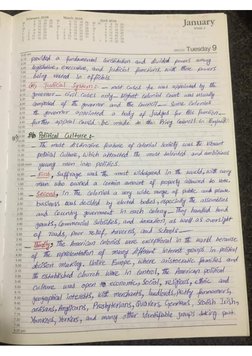 January
Tuesday 9
provided a fundamental constitution and divided powers among
legislative, executive, and judicial functions, with these powers
being vested in officials.
Judicial System: – most cases be was appointed by the
governor – civil cases only – highest colonial court was usually
comprised of the governor and the council – some colonial
the governor appointed a body of judges for the function –
further appeal could be made to the Privy Council in England.
Political Culture :-
– The most distinctive feature of colonial society was the vibrant
political culture, which attracted the most talented and ambitious
young men into politics.
– First, suffrage was the most widespread in the world, with every
man who owned a certain amount of property allowed to vote.
– Second, in the colonies a very wide range of public and private
business was decided by elected bodies, especially the assemblies
and County government in each colony – They handled land
grants, commercial subsidies, and taxation, as well as oversight
of roads, poor relief, taverns, and schools –
– Thirdly, the American Colonies were exceptional in the world because
of the representation of many different interest groups in political
decision making. Unlike Europe, where aristocratic families and
the established church were in control, the American political
culture was open to economic, social, religious, ethnic and
geographical interests, with merchants, landlords, petty farmers,
artisans, Anglicans, Presbyterians, Quakers, Germans, Scotch Irish,
Yankees, Yorkers, and many other identifiable groups taking part.